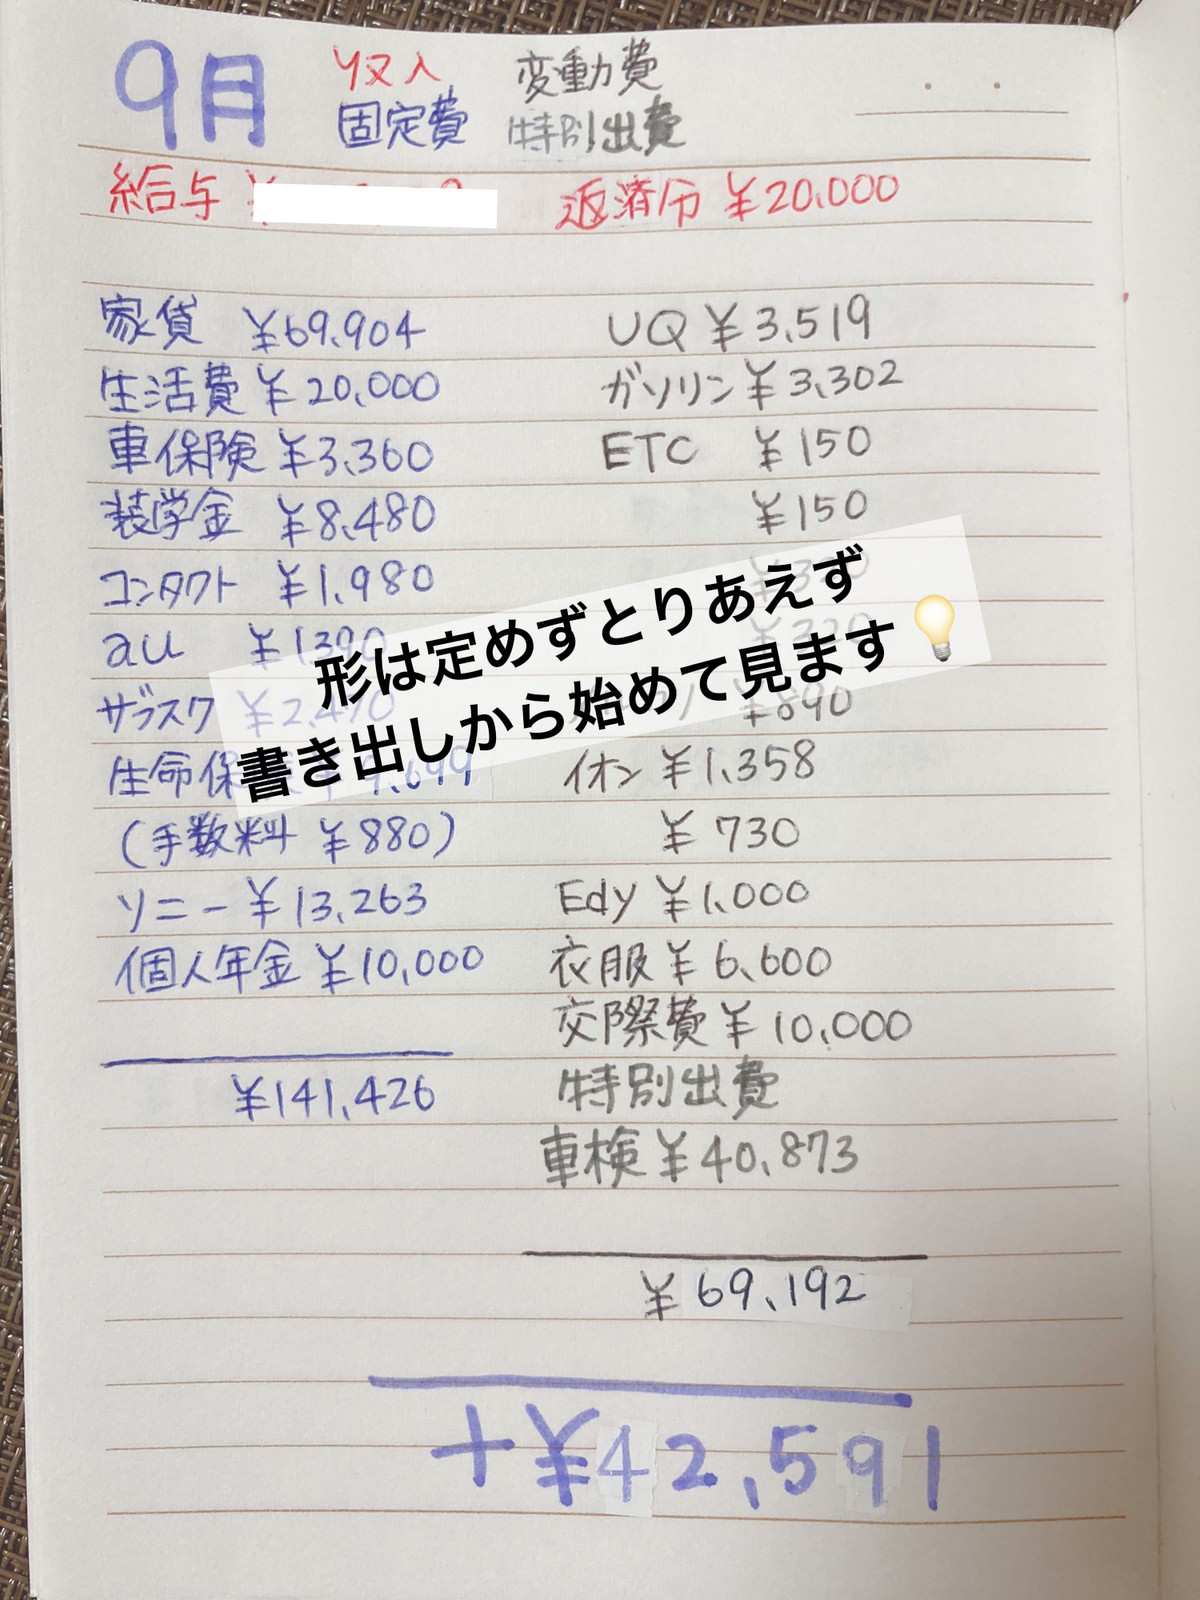 9月 収入 変動費
固定費 特別出費
給与 ¥ 返済分 ¥20,000
家賃 ¥69,904 UQ ¥3,519
生活費 ¥20,000 ガソリン ¥3,302
車保険 ¥3,360 ETC ¥150
奨学金 ¥8,480 ¥150
コンタクト ¥1,980
au ¥1390
サブスク ¥2,470 ¥890
形は定めずとりあえず
書き出しから始めて見ます💡
生命保 イオン ¥1,358
(手数料 ¥880) ¥730
ソニー ¥13,263 Edy ¥1,000
個人年金 ¥10,000 衣服 ¥6,600
交際費 ¥10,000
¥141,426 特別出費
車検 ¥40,873
¥69,192
+¥42,591